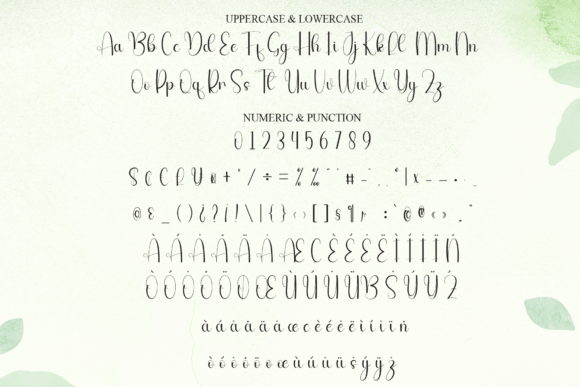 UPPERCASE & LOWERCASE
Aa Bb Cc Dd Ee Ff Gg Hh Ii Jj Kk Ll Mm Nn
Oo Pp Qq Rr Ss Tt Uu Vv Ww Xx Yy Zz
NUMERIC & PUNCTION
0 1 2 3 4 5 6 7 8 9
+ / ÷ = % ‰ # |
@ & _ ( ) ¿ ? ¡ ! \ | { } [ ] § ¶
À Á Â Ã Ä Å Æ Ç È É Ê Ë Ì Í Î Ï Ñ
Ò Ó Ô Õ Ö Ø Œ Ù Ú Û Ü ß Š Ý Ÿ Ž
à á â ã ä å æ ç è é ê ë ì í î ï ñ
ò ó ô õ ö ø œ ù ú û ü š ý ÿ ž